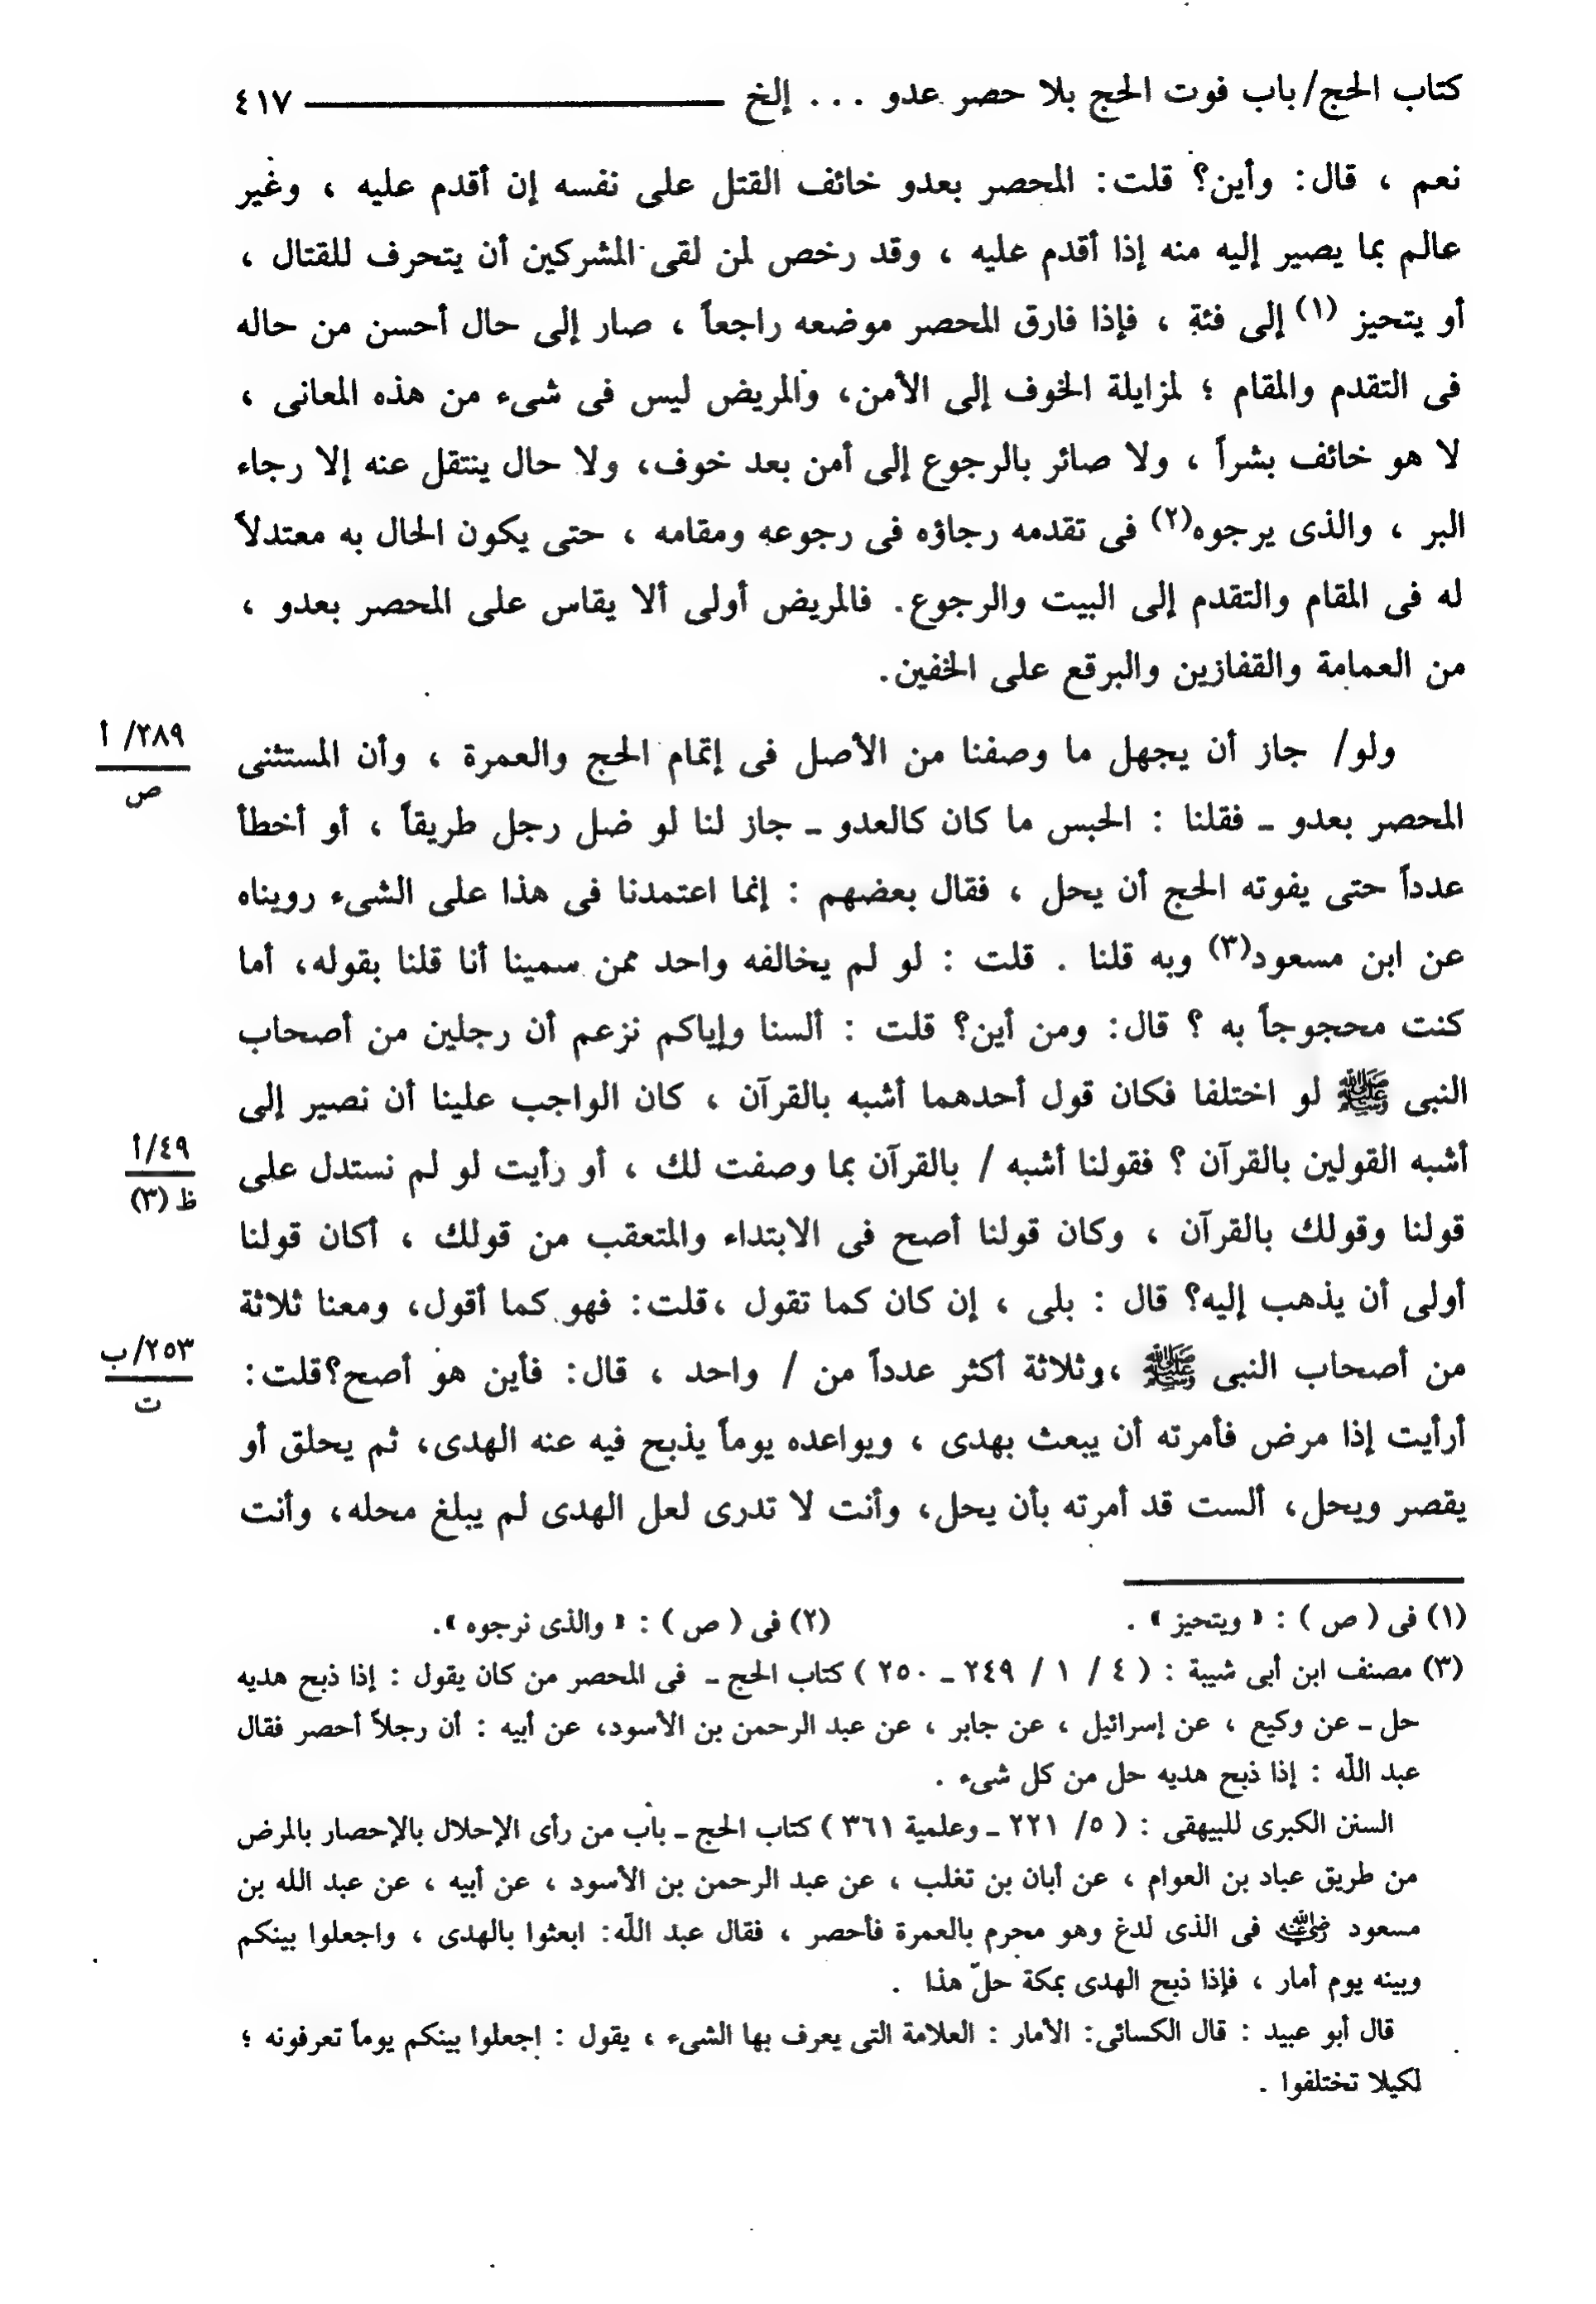 كتاب الحج/ باب فوت الحج بلا حصر عدو ... إلخ ٤١٧
نعم ، قال: وأين؟ قلت: المحصر بعدو خائف القتل على نفسه إن أقدم عليه ، وغير
عالم بما يصير إليه منه إذا أقدم عليه ، وقد رخص لمن لقى المشركين أن يتحرف للقتال ،
أو يتحيز (١) إلى فئة ، فإذا فارق المحصر موضعه راجعاً ، صار إلى حال أحسن من حاله
فى التقدم والمقام ؛ لمزايلة الخوف إلى الأمن، والمريض ليس فى شىء من هذه المعانى ،
لا هو خائف بشراً ، ولا صائر بالرجوع إلى أمن بعد خوف، ولا حال ينتقل عنه إلا رجاء
البر ، والذى يرجوه(٢) فى تقدمه رجاؤه فى رجوعه ومقامه ، حتى يكون الحال به معتدلاً
له فى المقام والتقدم إلى البيت والرجوع. فالمريض أولى ألا يقاس على المحصر بعدو ،
من العمامة والقفازين والبرقع على الخفين.
ولو/ جاز أن يجهل ما وصفنا من الأصل فى إتمام الحج والعمرة ، وأن المستثنى
٢٨٩/ أ
ص
المحصر بعدو ـ فقلنا : الحبس ما كان كالعدو ـ جاز لنا لو ضل رجل طريقاً ، أو أخطأ
عدداً حتى يفوته الحج أن يحل ، فقال بعضهم : إنما اعتمدنا فى هذا على الشىء رويناه
عن ابن مسعود(٣) وبه قلنا . قلت : لو لم يخالفه واحد ممن سمينا أنا قلنا بقوله، أما
كنت محجوجاً به ؟ قال: ومن أين؟ قلت : ألسنا وإياكم نزعم أن رجلين من أصحاب
النبى ﷺ لو اختلفا فكان قول أحدهما أشبه بالقرآن ، كان الواجب علينا أن نصير إلى
أشبه القولين بالقرآن ؟ فقولنا أشبه / بالقرآن بما وصفت لك ، أو رأيت لو لم نستدل على
٤٩/أ
ظ (٣)
قولنا وقولك بالقرآن ، وكان قولنا أصح فى الابتداء والمتعقب من قولك ، أكان قولنا
أولى أن يذهب إليه؟ قال : بلى ، إن كان كما تقول ،قلت: فهو كما أقول، ومعنا ثلاثة
من أصحاب النبى ﷺ ،وثلاثة أكثر عدداً من / واحد ، قال: فأين هو أصح؟قلت:
٢٥٣/ب
ت
أرأيت إذا مرض فأمرته أن يبعث بهدى ، ويواعده يوماً يذبح فيه عنه الهدى، ثم يحلق أو
يقصر ويحل، ألست قد أمرته بأن يحل، وأنت لا تدرى لعل الهدى لم يبلغ محله، وأنت
(١) فى ( ص ) : « ويتحيز » . (٢) فى ( ص ) : « والذى نرجوه ».
(٣) مصنف ابن أبى شيبة : ( ٤ / ١ / ٢٤٩ ـ ٢٥٠ ) كتاب الحج ـ فى المحصر من كان يقول : إذا ذبح هديه
حل ـ عن وكيع ، عن إسرائيل ، عن جابر ، عن عبد الرحمن بن الأسود، عن أبيه : أن رجلاً أحصر فقال
عبد الله : إذا ذبح هديه حل من كل شىء .
السنن الكبرى للبيهقى : ( ٥/ ٢٢١ ـ وعلمية ٣٦١ ) كتاب الحج ـ باب من رأى الإحلال بالإحصار بالمرض
من طريق عباد بن العوام ، عن أبان بن تغلب ، عن عبد الرحمن بن الأسود ، عن أبيه ، عن عبد الله بن
مسعود رضي الله عنه فى الذى لدغ وهو محرم بالعمرة فأحصر ، فقال عبد الله: ابعثوا بالهدى ، واجعلوا بينكم
وبينه يوم أمار ، فإذا ذبح الهدى بمكة حلّ هذا .
قال أبو عبيد : قال الكسائى: الأمار : العلامة التى يعرف بها الشىء ، يقول : اجعلوا بينكم يوماً تعرفونه ؛
لكيلا تختلفوا .